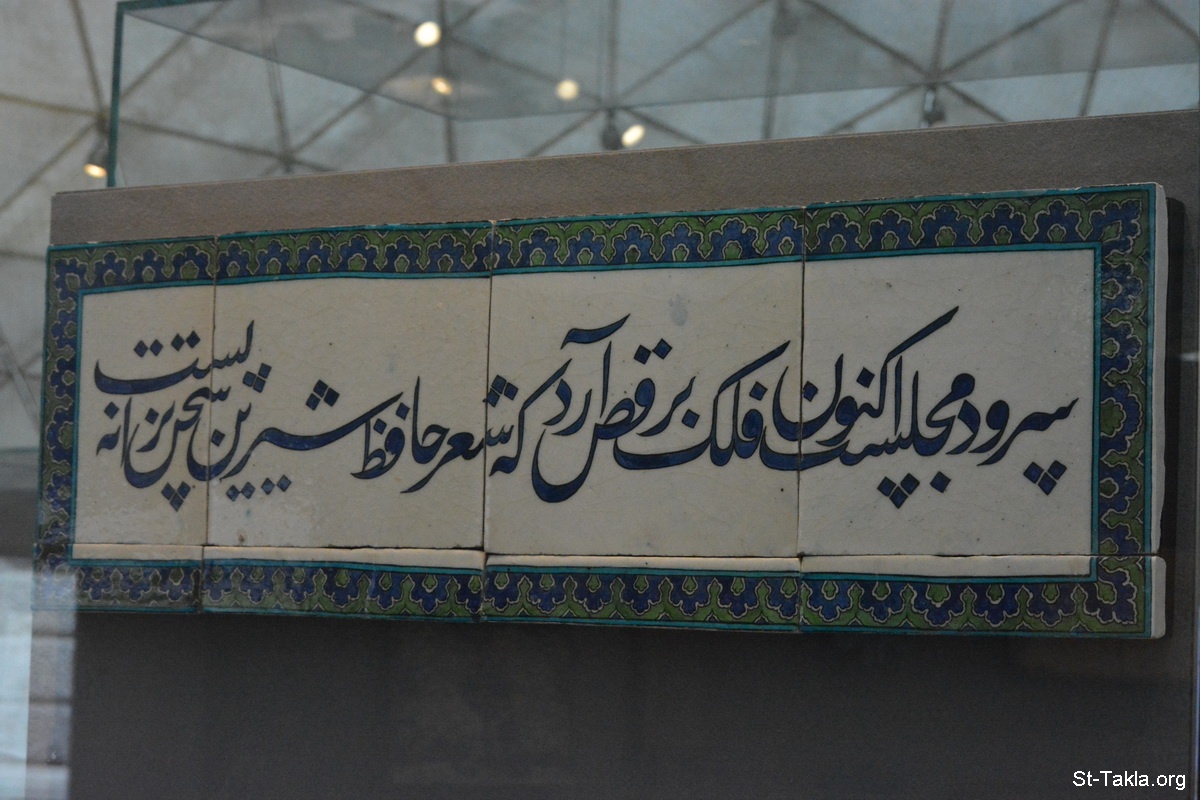 سرود مجلست اکنون فلک برقص آرد که شعر حافظ شیرین سخن ترانه تست
St-Takla.org